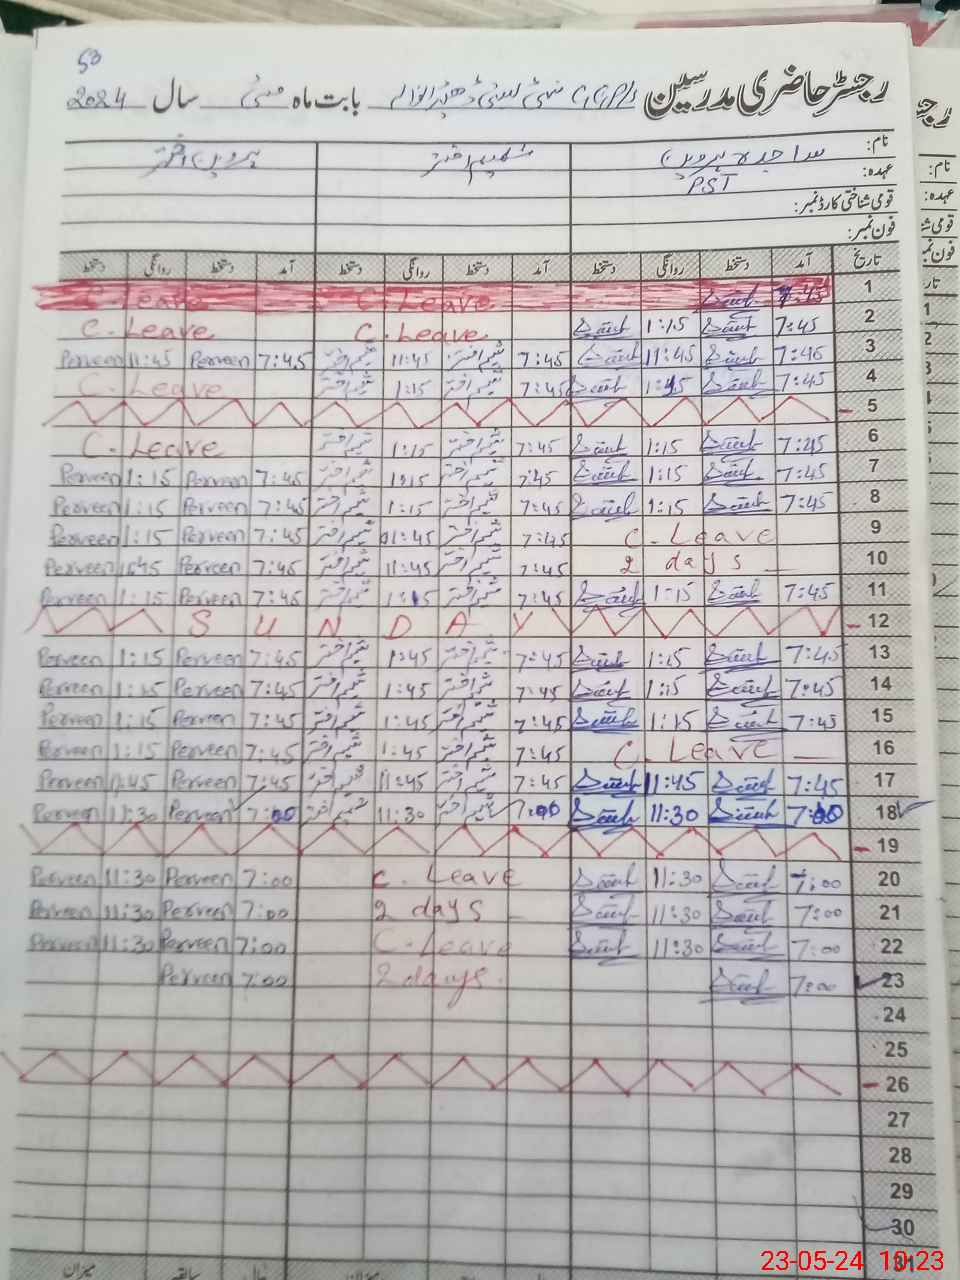 53
رجسٹر حاضری مدرسین GGPS بابت ماہ مئی سال 2024
نام: ساجدہ پروین شمیم اختر پروین اختر
عہدہ: PST
قومی شناختی کارڈ نمبر:
فون نمبر:
تاریخ آمد دستخط روانگی دستخط آمد دستخط روانگی دستخط آمد دستخط روانگی دستخط
1 7:45 C. Leave C. Leave
2 7:45 1:15 C. Leave C. Leave
3 7:45 11:45 7:45 شمیم اختر 11:45 شمیم اختر 7:45 Perveen 11:45 Perveen
4 7:45 1:45 7:45 شمیم اختر 1:15 شمیم اختر C. Leave
5
6 7:45 1:15 7:45 شمیم اختر 1:15 شمیم اختر C. Leave
7 7:45 1:15 7:45 شمیم اختر 1:15 شمیم اختر 7:45 Perveen 1:15 Perveen
8 7:45 1:15 7:45 شمیم اختر 1:15 شمیم اختر 7:45 Perveen 1:15 Perveen
9 C. Leave 7:45 شمیم اختر 11:45 شمیم اختر 7:45 Perveen 1:15 Perveen
10 2 days 7:45 شمیم اختر 11:45 شمیم اختر 7:45 Perveen 11:45 Perveen
11 7:45 1:15 7:45 شمیم اختر 1:15 شمیم اختر 7:45 Perveen 1:15 Perveen
12 SUNDAY
13 7:45 1:15 7:45 شمیم اختر 1:45 شمیم اختر 7:45 Perveen 1:15 Perveen
14 7:45 1:15 7:45 شمیم اختر 1:45 شمیم اختر 7:45 Perveen 1:15 Perveen
15 7:45 1:15 7:45 شمیم اختر 1:45 شمیم اختر 7:45 Perveen 1:15 Perveen
16 C. Leave 7:45 شمیم اختر 1:45 شمیم اختر 7:45 Perveen 1:15 Perveen
17 7:45 11:45 7:45 شمیم اختر 11:45 شمیم اختر 7:45 Perveen 11:45 Perveen
18 7:00 11:30 7:00 شمیم اختر 11:30 شمیم اختر 7:00 Perveen 11:30 Perveen
19
20 7:00 11:30 C. Leave 7:00 Perveen 11:30 Perveen
21 7:00 11:30 2 days 7:00 Perveen 11:30 Perveen
22 7:00 11:30 C. Leave 7:00 Perveen 11:30 Perveen
23 7:00 2 days. 7:00 Perveen
24
25
26
27
28
29
30
31
میزان سابقہ حال میزان
23-05-24 10:23